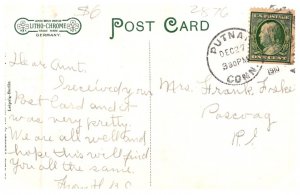 86
2876
LITHO-CHROME
GERMANY
POST CARD
PUTNAM
DEC 27
3 30 PM
1910
CONN.
ONE CENT
Leipzig-Berlin
Dear Aunt.
I received your
Post Card and it
was very pretty.
We are all well and
hope this will find
you all the same.
From H.
Mrs. Frank
Pascoag
R.I